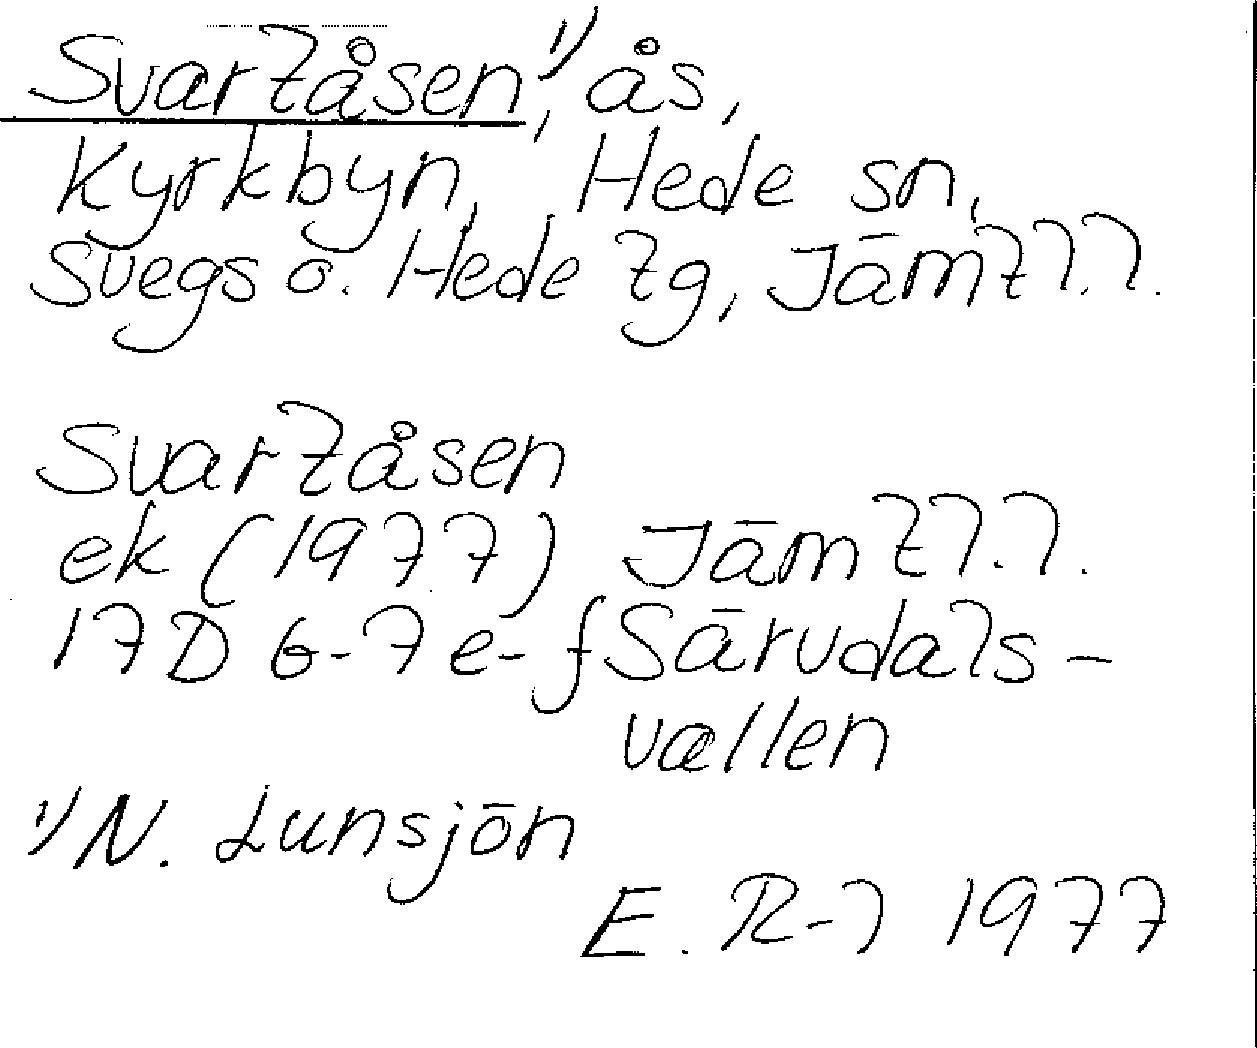 Svartåsen,¹⁾ ås,
Kyrkbyn, Hede sn,
Svegs o. Hede tg, Jämtl.l.
Svartåsen
ek (1977) Jämtl.l.
17D 6-7 e-f Särvdals-
vallen
¹⁾ N. Lunsjön
E. R-l 1977